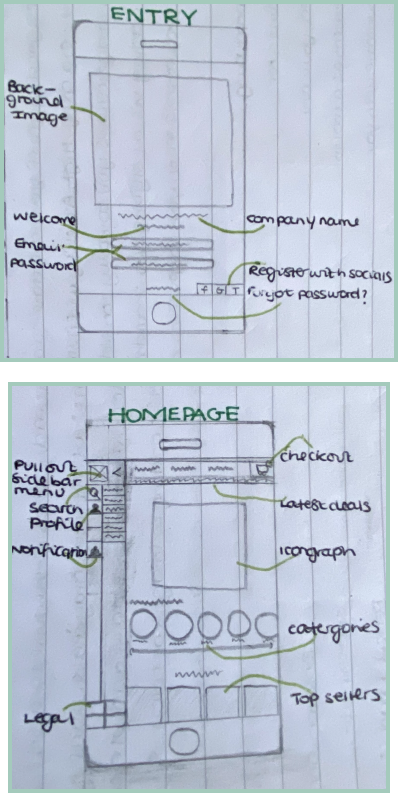 ENTRY
Back-
ground
Image
Welcome
company name
Email
password
Register with socials
f G T
Forgot password?
HOMEPAGE
checkout
Pull out
Side bar
menu
Search
Profile
Notification
Latest deals
Icongraph
catergories
Top sellers
Legal